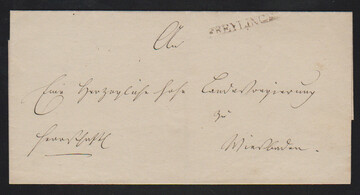 FREYLINGEN
An
Eine Herzogliche hohe Landesregierung
zu
Herrschaftl
Wiesbaden.